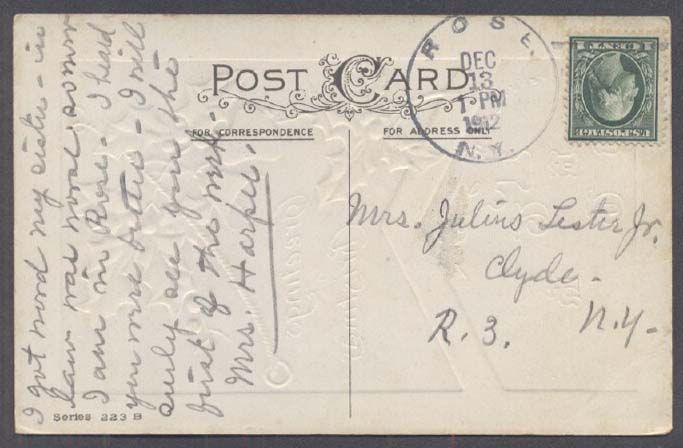 POST CARD
FOR CORRESPONDENCE
FOR ADDRESS ONLY
ROSE.
DEC
13
1 PM
1912
N.Y.
U.S. POSTAGE
I got word my sister-in
law was worse, so now
I am in Rose. I heard
you were better. I will
surly see you the
first of the week.
Mrs. Harper.
Mrs. Julius Lester Jr.
Clyde.
R. 3. N.Y.
Series 223 B